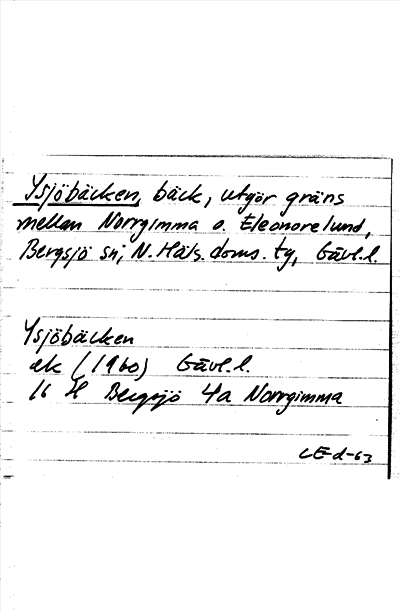 Ysjöbäcken, bäck, utgör gräns
mellan Norrgimma o. Eleonorelund,
Bergsjö sn, N. Häls. doms. tg, Gävl. l.
Ysjöbäcken
ek (1960) Gävl. l.
16 H Bergsjö 4a Norrgimma
CE-d-63